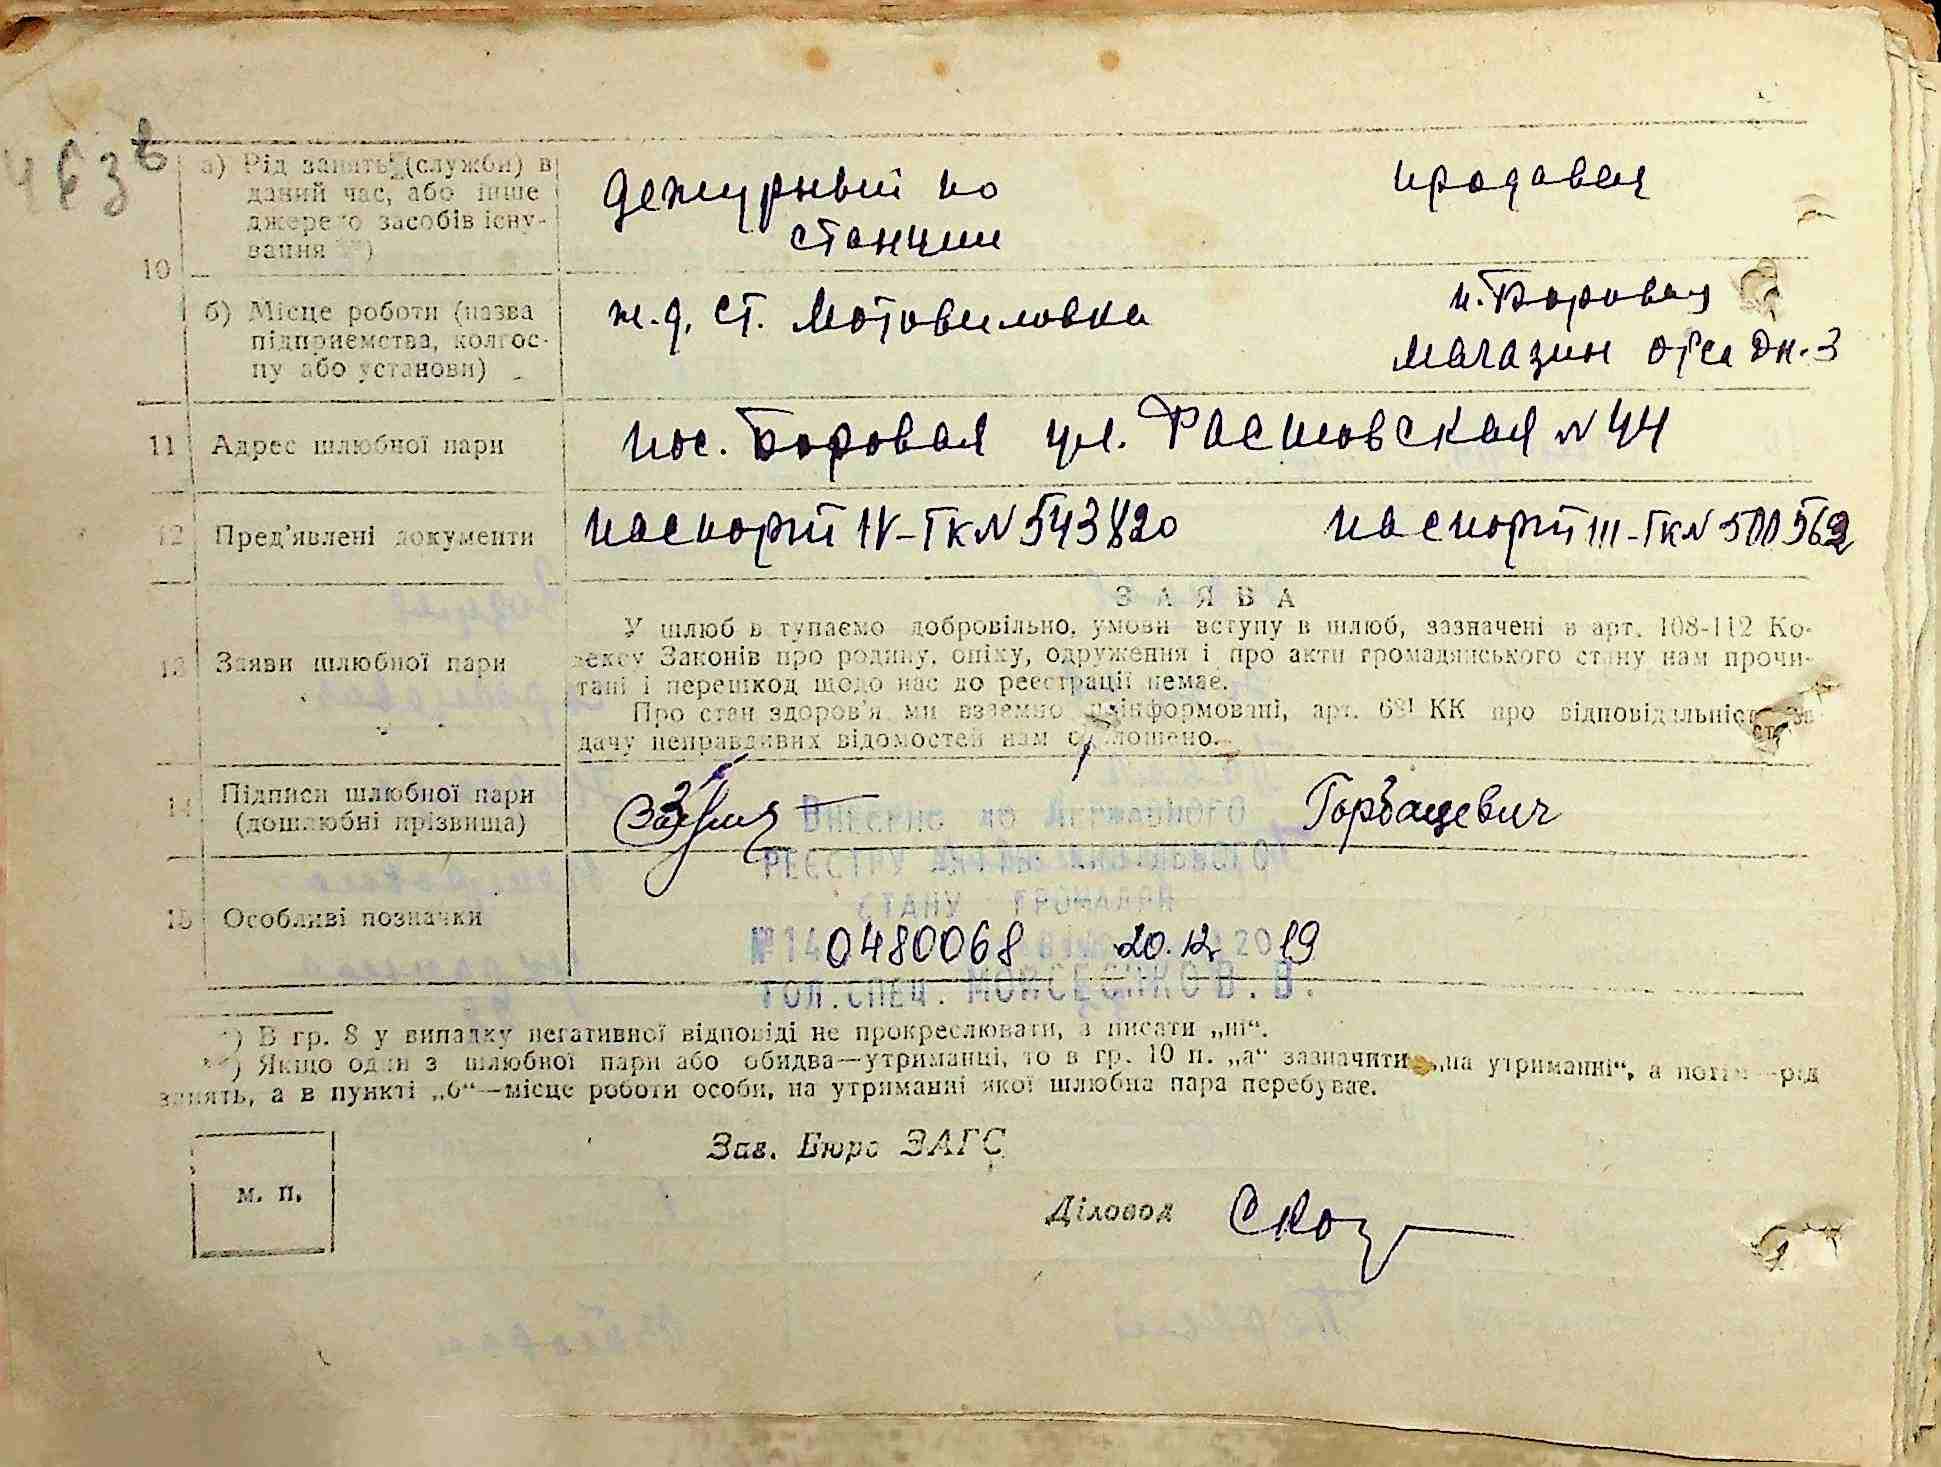 463 в
а) Рід занять (служби) в дежурный по продавец
даний час, або інше
джерело засобів існу- станции
вання **)
10
б) Місце роботи (назва ж.д. ст. Мотовиловка п. Боровая
підприємства, колгос- магазин орса дн-3
пу або установи)
11 Адрес шлюбної пари пос. Боровая ул. Фастовская №44
12 Пред'явлені документи паспорт IV-ТК№ паспорт III-ТК№
ЗАЯВА
У шлюб вступаємо добровільно, умови вступу в шлюб, зазначені в арт. 108-112 Ко-
13 Заяви шлюбної пари дексу Законів про родину, опіку, одруження і про акти громадянського стану нам прочи-
тані і перешкод щодо нас до реєстрації немає.
Про стан здоров'я ми взаємно поінформовані, арт. КК про відповідальність за
дачу неправдивих відомостей нам оголошено.
14 Підписи шлюбної пари Горбацевич
(дошлюбні прізвища)
Внесено до Державного
реєстру актів цивільного
стану громадян
15 Особливі позначки
№14 0480068 20.12 2019
гол. спец. В.
*) В гр. 8 у випадку негативної відповіді не прокреслювати, а писати „ні“.
**) Якщо один з шлюбної пари або обидва—утриманці, то в гр. 10 п. „а“ зазначити „на утриманні“, а потім—рід
занять, а в пункті „б“—місце роботи особи, на утриманні якої шлюбна пара перебуває.
Зав. Бюро ЗАГС
м. п.
Діловод